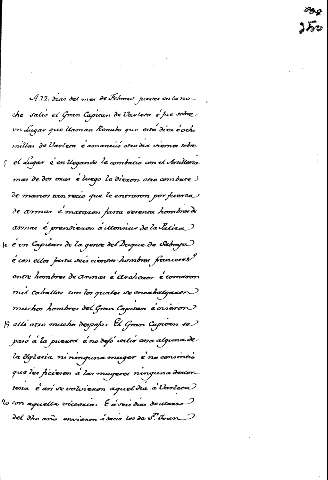 250
A 22 dias del mes de Febrero jueves en la no-
che salió el Gran Capitan de Varleta é fue sobre
un Lugar que llaman Rouba que está diez é och
millas de Varleta é amaneció otro dia viernes sobre
5 el Lugar é en llegando le combatio con el Artilleria
mas de dos oras é luego le dieron otro combate
de manos tan recio que le entraron por fuerza
de armas é mataron fasta setenta hombres de
armas é prendieron á Monsiur de la Paliza
10 é un Capitan de la gente del Duque de Saboya
é con ellos fasta seis cientos hombres franceses
entre hombres de armas é Archeros é tomaron
mil caballos con los quales se encabalgaron
muchos hombres del Gran Capitan é ovieron
15 allí otro mucho despojo. El Gran Capitan se
paró á la puerta é no dejó salir cosa alguna de
la Iglesia ni ninguna muger é no consintió
que les ficiesen á las mugeres ninguna descor-
tesia é asi se volvieron aquel dia á Varleta
20 con aquella victoria. E á seis dias de marzo
del dho año enviaron á decir los de Sn. Juan